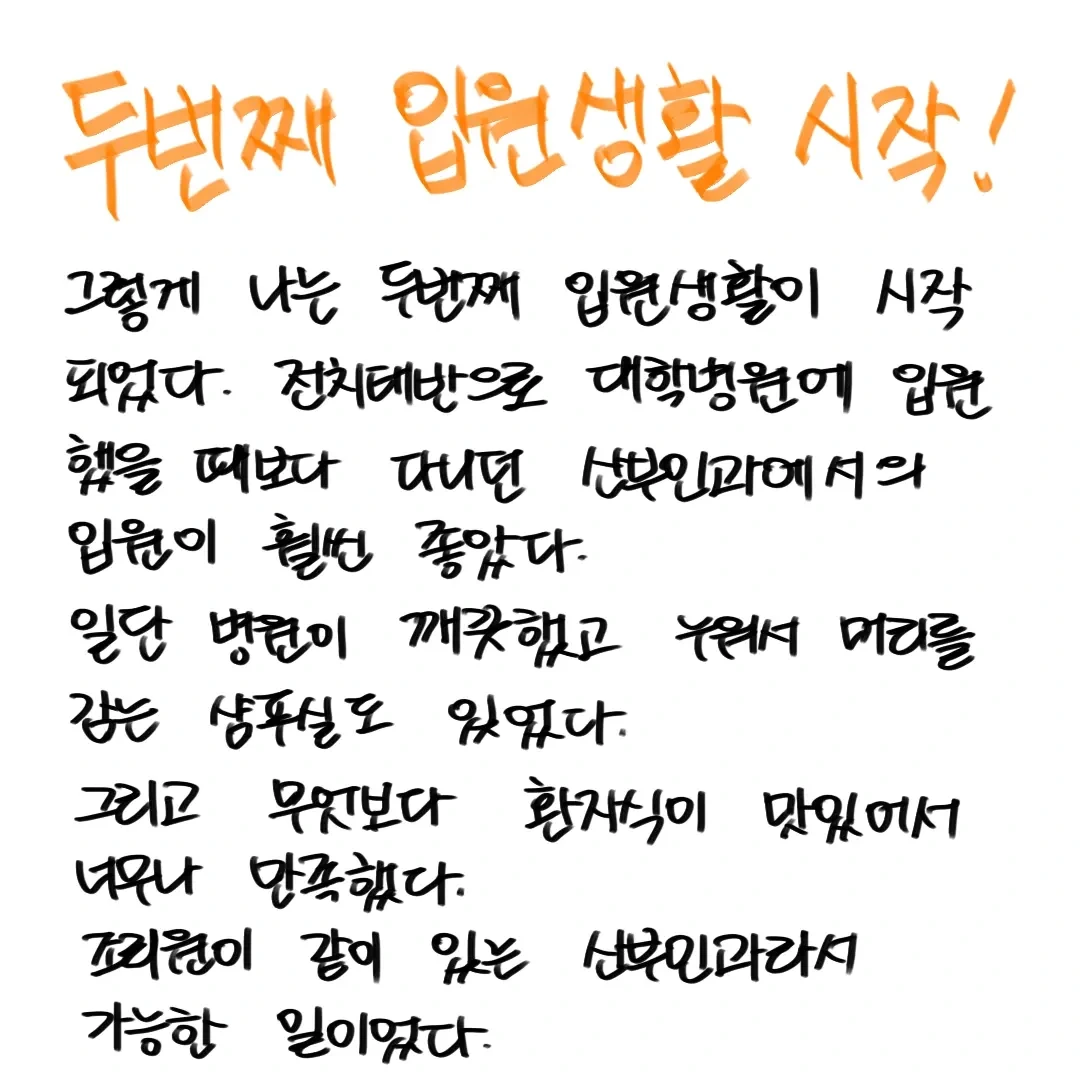 두번째 입원생활 시작!
그렇게 나는 두번째 입원생활이 시작
되었다. 전치태반으로 대학병원에 입원
했을 때보다 다니던 산부인과에서의
입원이 훨씬 좋았다.
일단 병원이 깨끗했고 누워서 머리를
감는 샴푸실도 있었다.
그리고 무엇보다 환자식이 맛있어서
너무나 만족했다.
조리원이 같이 있는 산부인과라서
가능한 일이었다.